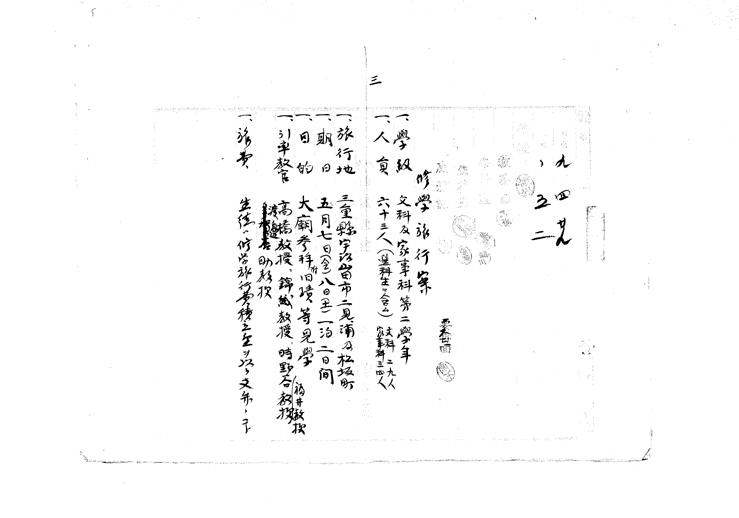 三
九、四、廿九
、五二
修學旅行案
一、學級 文科及家事科第二學年
一、人員 六十三人(選科生ヲ含ム) 文科 二九人 家事科 三四人
一、旅行地 三重縣宇治山田市二見浦及松坂町
一、期日 五月七日(金)八日(土)一泊二日間
一、目的 大廟参拝附旧蹟等見學
一、引率教官 高橋教授、錦織教授、時野谷教授 福井教授
助教授
一、旅費 生徒ハ修学旅行費積立金ヲ以テ支弁ノコト